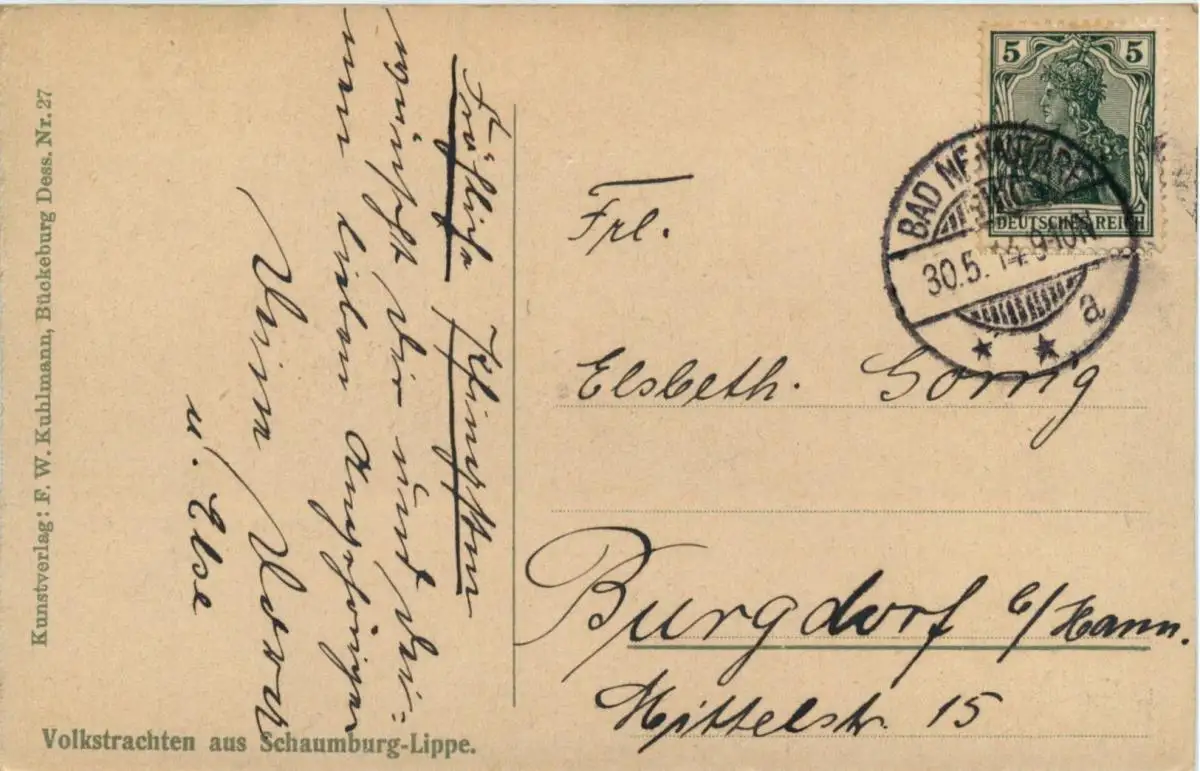 Kunstverlag: F. W. Kuhlmann, Bückeburg Dess. Nr. 27
Fröhliche Pfingsten
wünscht Dir und Dei=
nen lieben Angehörigen
Deine
u. Else
5 5
DEUTSCHES REICH
BAD NENNDORF
30.5.14.9-10N
a
Frl.
Elsbeth. Gorrig
Burgdorf b/Hann.
Mittelstr. 15
Volkstrachten aus Schaumburg-Lippe.